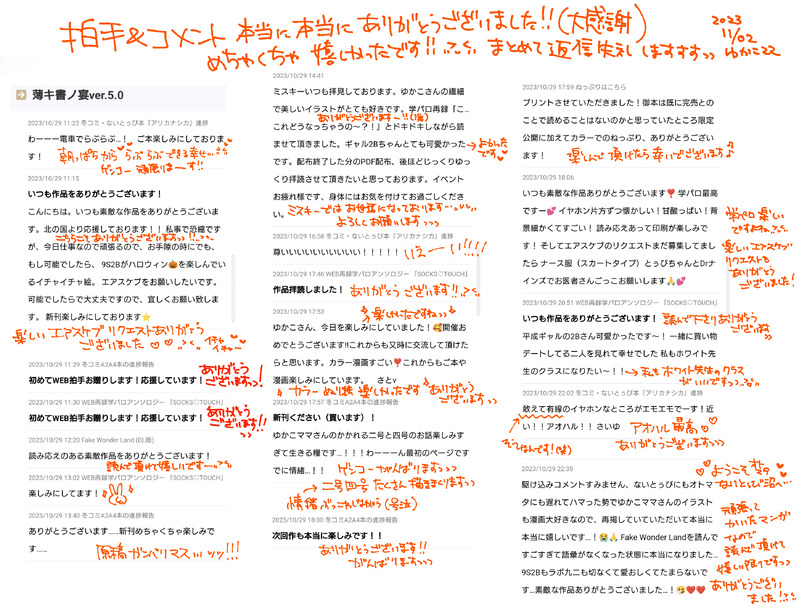 拍手&コメント 本当に本当に ありがとうございました!!(大感謝)
めちゃくちゃ 嬉しかったです!! まとめて返信失礼しますすす
2023
11/02
ゆかこ22
薄キ書ノ宴ver.5.0
2023/10/29 11:22 冬コミ・ないとぅぴ本『アリカナシカ』進捗
わーーー電車でらぶらぶ…！ ご本楽しみにしておりま
す！
朝っぱちから らぶらぶできる幸せ…
ゲンコー 頑張はーす!!
2023/10/29 11:15
いつも作品をありがとうございます！
こんにちは。いつも素敵な作品をありがとうございま
す。北の国より応援しております！！ 私事で恐縮です
こちらこそありがとうございますっっ!!
が、今日仕事なので頑張るので、お手隙の時にでも、
もし可能でしたら、9S2Bがハロウィン🎃を楽しんでい
るイチャイチャ絵。エアスケブをお願いしたいです。
可能でしたらで大丈夫ですので、宜しくお願い致しま
す。 新刊楽しみにしております⭐
楽しいエアスケブ リクエストありがとう
ございました♡♡
イチャイチャ〜
2023/10/29 11:29 冬コミA2A4本の進捗報告
初めてWEB拍手お贈りします！応援しています！
ありがとうございますっ!
2023/10/29 11:30 WEB再録学パロアンソロジー「SOCKS♡TOUCH」
初めてWEB拍手お贈りします！応援しています！
ありがとうございますっ!!
2023/10/29 12:20 Fake Wonder Land (DL版)
読み応えのある素敵作品をありがとうございます！
読んで頂けて嬉しいです
2023/10/29 13:02 WEB再録学パロアンソロジー「SOCKS♡TOUCH」
楽しみにしてます！
2023/10/29 13:40 冬コミA2A4本の進捗報告
ありがとうございます……新刊めちゃくちゃ楽しみで
す……
原稿ガンバリマスッッ!!!
2023/10/29 14:41
ミスキーいつも拝見しております。ゆかこさんの繊細
で美しいイラストがとても好きです。学パロ再録『こ…
ありがとうございますー!!
これどうなっちゃうの〜？！』とドキドキしながら読
ませて頂きました。ギャル2Bちゃんとても可愛かった
よかったです♥
です〜！配布終了した分のPDF配布、後ほどじっくりゆっく
り拝読させて頂きたいと思っております。イベント
お疲れ様です、身体にはお気を付けてお過ごしくださ
い。
ミスキーではお世話になっております
よろしくお願いします
2023/10/29 16:58 冬コミ・ないとぅぴ本『アリカナシカ』進捗
尊いいいいいいいいい！！！！！
いえーい!!!!
2023/10/29 17:40 WEB再録学パロアンソロジー「SOCKS♡TOUCH」
作品拝読しました！
ありがとうございます!!
2023/10/29 17:53
楽しけたですねっっ
ゆかこさん、今日を楽しみにしていました！🥰開催お
めでとうございます‼これからも交時に交流して頂けた
らと思います。カラー漫画すごい❣これからもご本や
漫画楽しみにしています。 さとv
カラーぬり機 楽しかったです ありがとうございます
2023/10/29 17:57 冬コミA2A4本の進捗報告
新刊ください（買います）！
ゆかこママさんのかかれる二号と四号のお話楽しみす
ぎて生きる糧です…！！！わーーーん最初のページで
でに情緒…！！
ゲンコーがんばりますっっ
→二号四号 たくさん描きまくりますっっ
情緒 ぶっこわしながら(号泣)
2023/10/29 18:00 冬コミA2A4本の進捗報告
次回作も本当に楽しみです！！
ありがとうございます!!
がんばりますっっ
2023/10/29 17:59 ねっぷりはこちら
プリントさせていただきました！御本は既に完売との
ことで読めることはないのかと思っていたところ限定
公開に加えてカラーでのねっぷり、ありがとうござい
ます！
楽しんで頂けたら幸いでございます♪
2023/10/29 18:06
いつも素敵な作品ありがとうございます❣ 学パロ最高
ですー💕 イヤホン片方ずつ懐かしい！甘酸っぱい！背
景細かくてすごい！ 読み応えあって印刷が楽しみで
す！そしてエアスケブのリクエストまだ募集してました
らナース服（スカートタイプ）とぅぴちゃんとDrナ
インズでお医者さんごっこお願いします🙏💕
学パロ楽しいですよね
楽しいエアスケブ
リクエストも
ありがとう
ございました!
2023/10/29 20:51 WEB再録学パロアンソロジー「SOCKS♡TOUCH」
いつも作品をありがとうございます！
読んで下さりありがとうございます
平成ギャルの2Bさん可愛かったです〜！ 一緒に買い物
デートしてる二人を見れて幸せでした 私もホワイト先生
のクラスになりたい〜！！
→私もホワイト先生のクラスがいいですっっ
2023/10/29 22:02 冬コミ・ないとぅぴ本『アリカナシカ』進捗
敢えて有線のイヤホンなところがエモエモでーす！近
い！！アオハル！！ さいゆ
アオハル最高♡♡
ありがとうございますっっ
そうなんです!
2023/10/29 22:35
ようこそ
ないとぅぴ沼へ…
駆け込みコメントすみません、ないとぅぴにもオトマ
タにも遅れてハマった勢でゆかこママさんのイラスト
も漫画大好きなので、再掲していていただいて本当に本
当に嬉しいです…！😭🙏 Fake Wonder Landを読んで
すごすぎて語彙がなくなった状態に本当になりました…
9S2Bもラボ九二も切なくて愛おしくてたまらないで
す…素敵な作品ありがとうございました…！🤧❤❤
頑張って
かいたマンガ
なので
読んで頂けて
嬉しい限りですっっ
ありがとうござい
ました!